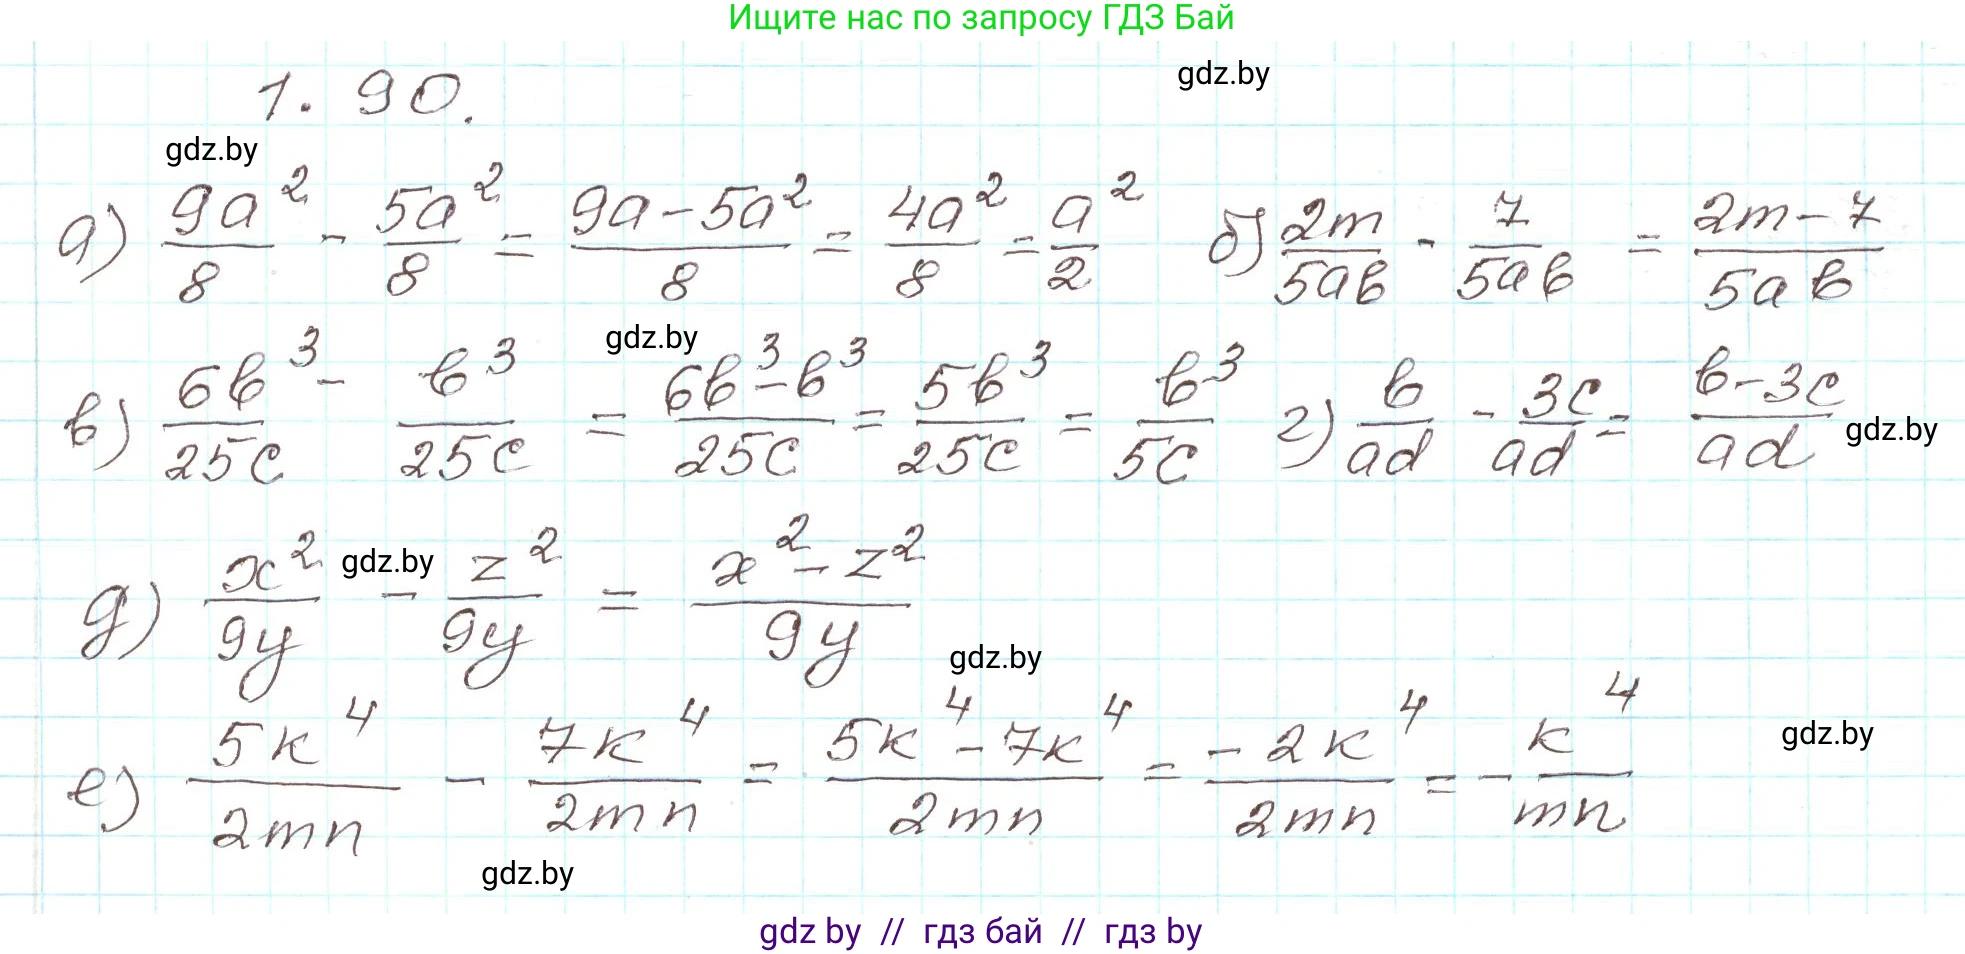 Ищите нас по запросу ГДЗ Бай
gdz.by
1.90.
gdz.by
а) 9a²/8 - 5a²/8 = 9a-5a²/8 = 4a²/8 = a²/2 б) 2m/5ab - 7/5ab = 2m-7/5ab
gdz.by
в) 6b³/25c - b³/25c = 6b³-b³/25c = 5b³/25c = b³/5c г) b/ad - 3c/ad = b-3c/ad
gdz.by
д) x²/9y - z²/9y = x²-z²/9y
gdz.by
gdz.by
е) 5k⁴/2mn - 7k⁴/2mn = 5k⁴-7k⁴/2mn = -2k⁴/2mn = - k⁴/mn
gdz.by
gdz.by
gdz by // гдз бай // гдз by